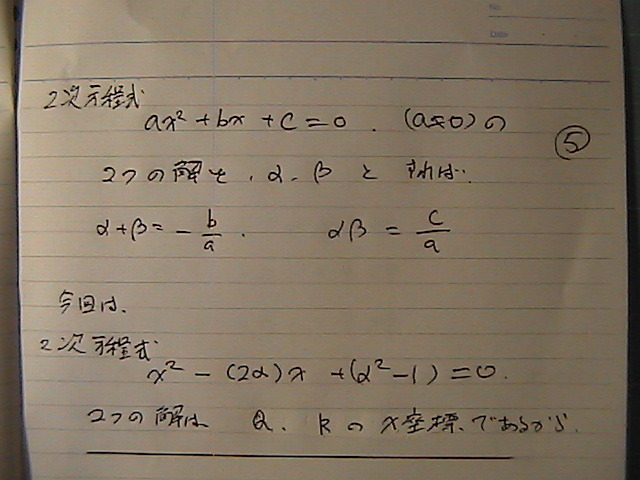 No.
Date
2次方程式
ax² + bx + c = 0. (a≠0) の
⑤
2つの解を、α、β と すれば、
α+β = - b/a . αβ = c/a
今回は、
2次方程式
x² - (2α)x + (α²-1) = 0.
2つの解は Q、R の x座標であるから